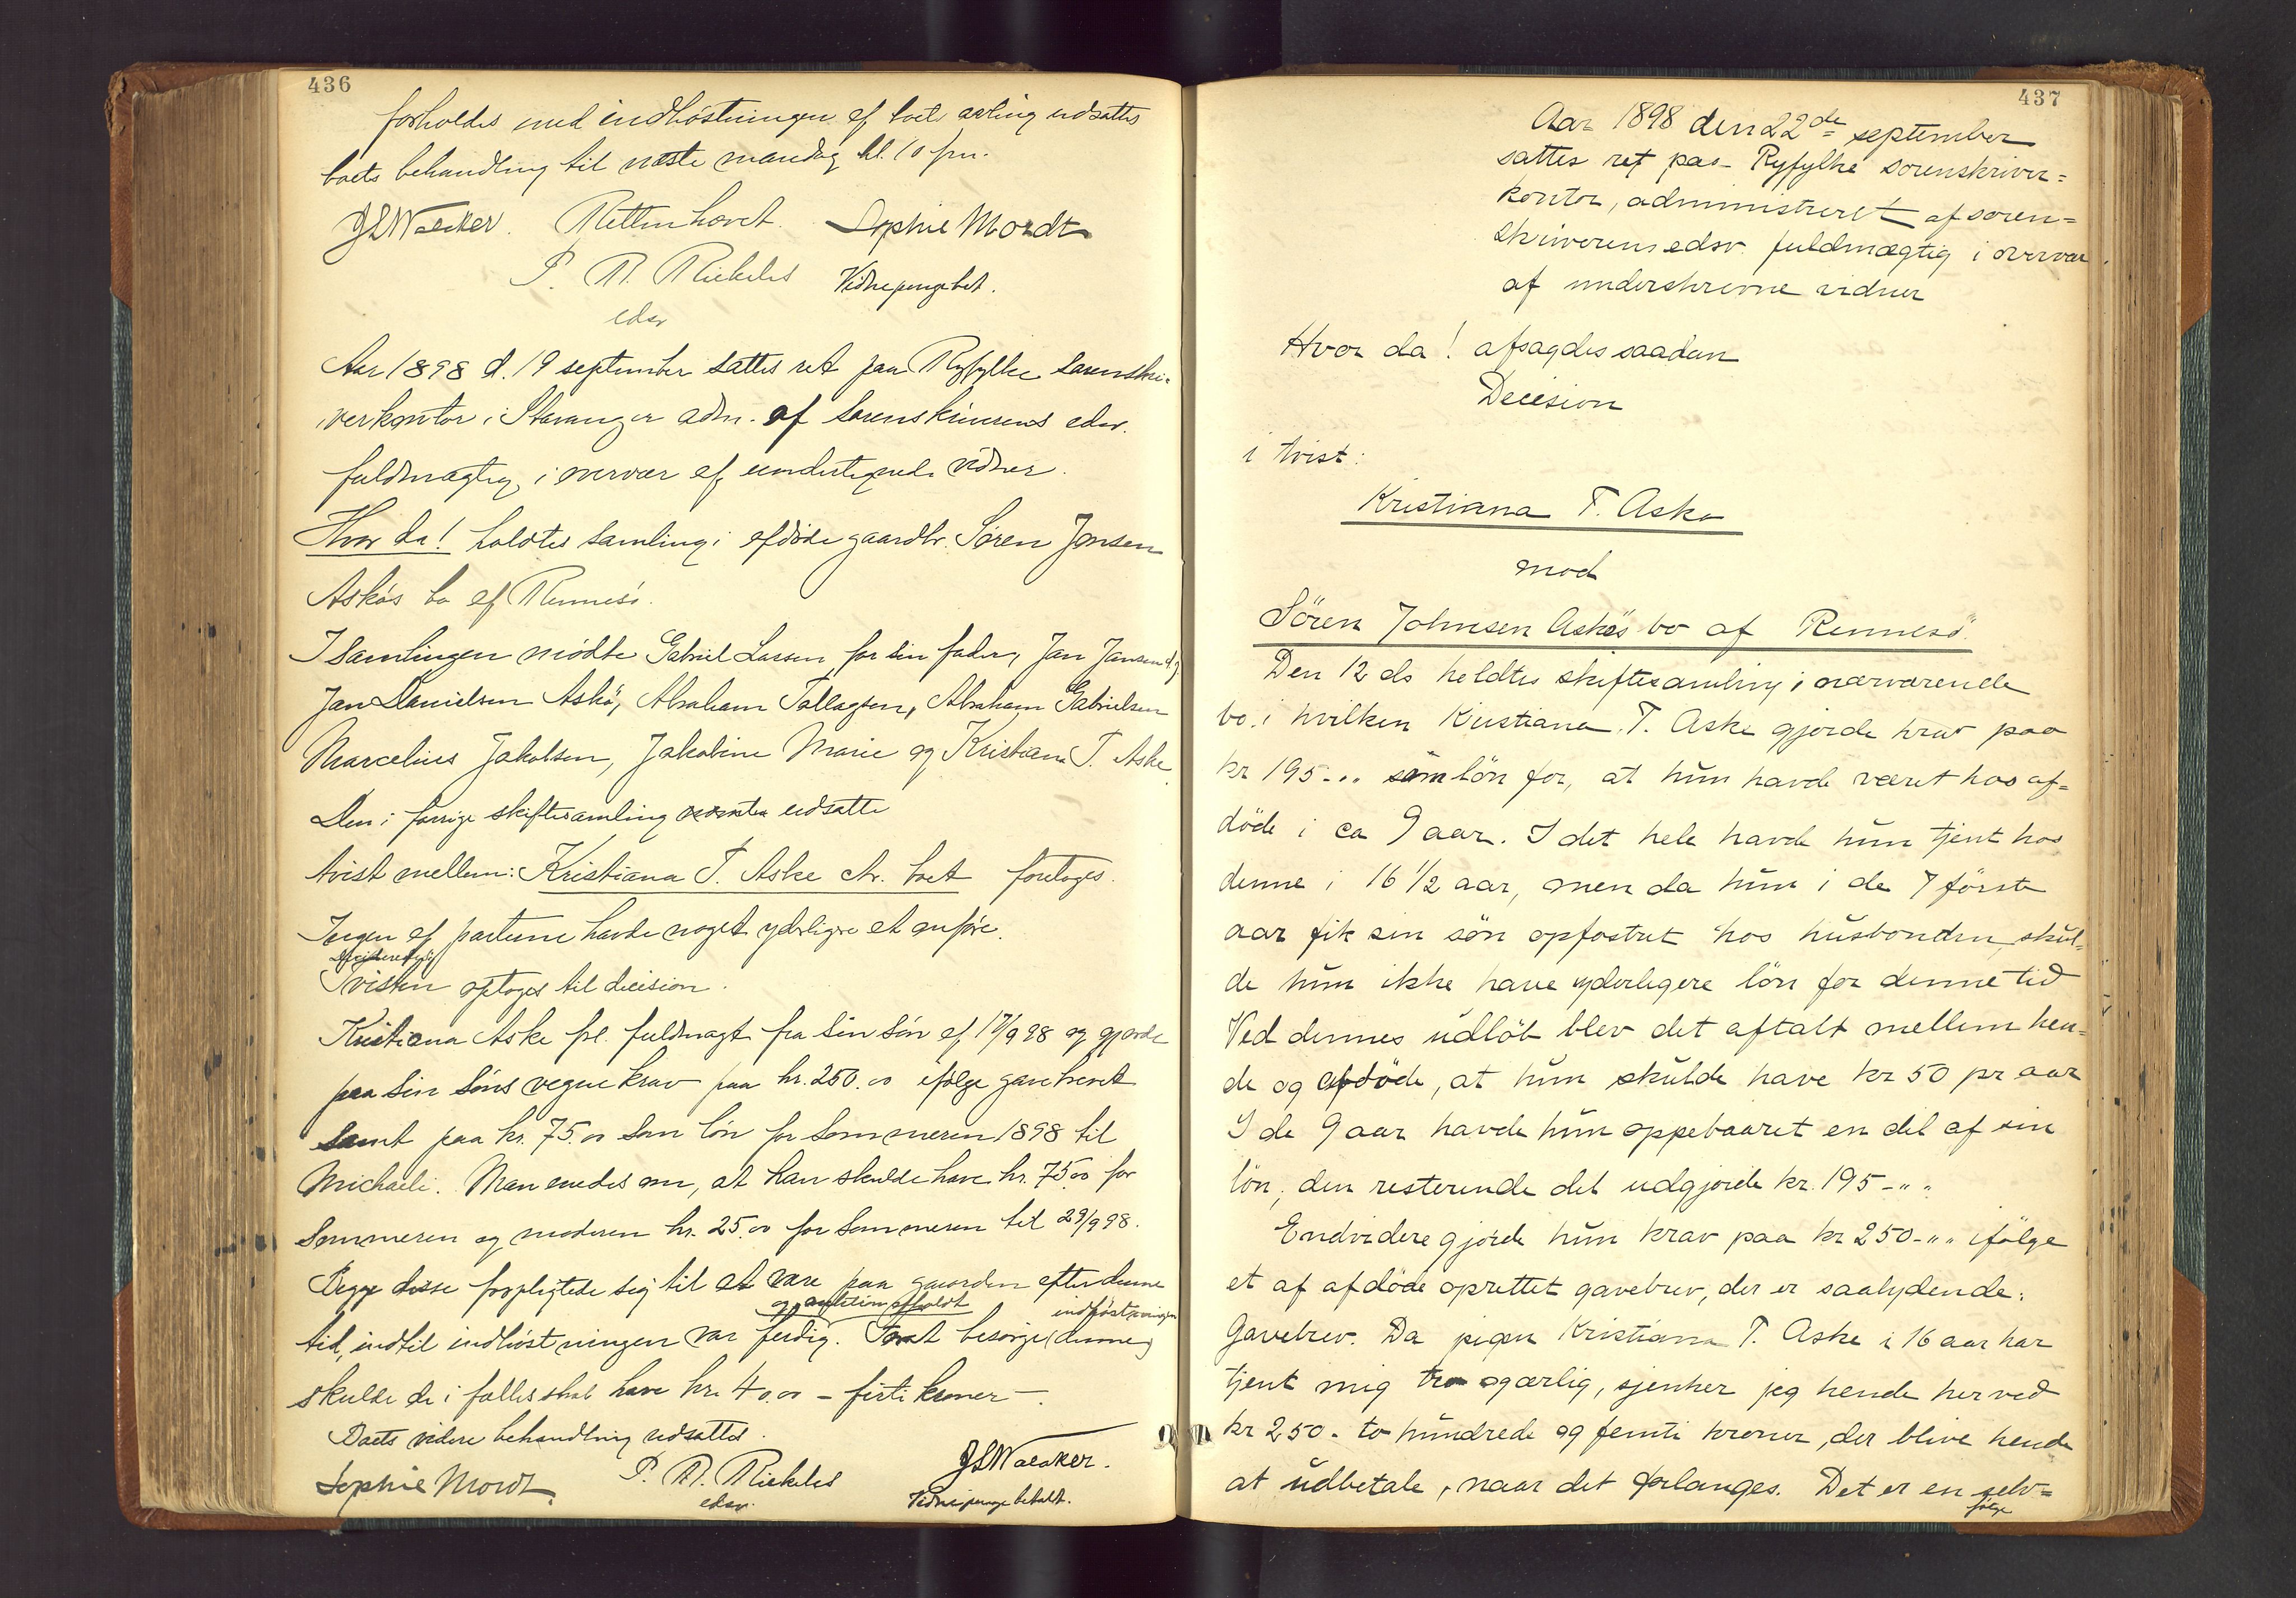 436
forholdes med indhøstningen af boets avling udsattes
boets behandling til næste mandag kl. 10 fm.
JSWaaker. Retten hævet. Sophie Mordt
P. A. Rickeles Vidnepenge bet.
edsv
Aar 1898 d. 19 september sattes ret paa Ryfylke sorenskri-
verkontor i Stavanger adm. af sorenskriverens edsv.
fuldmægtig i overvær af undertegnede vidner.
Hvor da! holdtes samling i afdöde gaardbr. Sören Jonsen
Askös bo af Rennesö.
I samlingen mödte Gabriel Larsen for sin fader, Jan Jansen d.y.
Jan Danielsen Askö, Abraham Tollagsen, Abraham Gabrielsen
Marcelius Jakobsen, Jakobine Marie og Kristiana T. Aske
Den i forrige skiftesamling udsatte
tvist mellem: Kristiana T. Aske ctr. boet foretoges.
Ingen af parterne havde noget yderligere at anföre.
Tvisten optoges til decision.
Kristiana Aske frl. fuldmagt fra sin sön af 17/9 98 og gjorde
paa sin söns vegne krav paa kr. 250.00 ifölge gavebrevet
samt paa kr. 75.00 som lön for sommeren 1898 til
Michaeli. Man enedes om, at han skulde have kr. 75.00 for
sommeren og moderen kr. 25.00 for sommeren til 29/9 98.
Begge disse forpligtede sig til at være paa gaarden efter denne
og auktion afholdt indhöstningen
tid, indtil indhöstningen var ferdig. For at besörge (denne)
skulde de i fællesskab have kr. 40.00 - firti kroner -.
Boets videre behandling udsattes.
JSWaaker.
Sophie Mordt. P. A. Rickeles
edsv. Vidnepenge betalt.
437
Aar 1898 den 22de september
sattes ret paa Ryfylke sorenskriver=
kontor, administreret af soren=
skriverens edsv. fuldmægtig i overvær
af underskrevne vidner
Hvor da! afsagdes saadan
Decision
i tvist:
Kristiana T. Aske
mod
Sören Johnsen Askös bo af Rennesö.
Den 12 ds holdtes skiftesamling i nærværende
bo. i hvilken Kristiana T. Aske gjorde krav paa
kr 195-,, som lön for, at hun havde været hos af=
döde i ca 9 aar. I det hele havde hun tjent hos
denne i 16 1/2 aar, men da hun i de 7 förste
aar fik sin sön opfostret hos husbonden, skul=
de hun ikke have yderligere lön for denne tid
Ved dennes udlöb blev det aftalt mellem hen=
de og afdöde, at hun skulde have kr 50 pr aar
I de 9 aar havde hun oppebaaret en del af sin
lön; den resterende del udgjorde kr. 195-,, .
Endvidere gjorde hun krav paa kr 250-,, ifölge
et af afdöde oprettet gavebrev, der er saalydende:
Gavebrev. Da pigen Kristiana T. Aske i 16 aar har
tjent mig tro og ærlig, sjenker jeg hende herved
kr 250 - to hundrede og femti kroner, der blive hende
at udbetale, naar det forlanges. Det er en selv=
følge